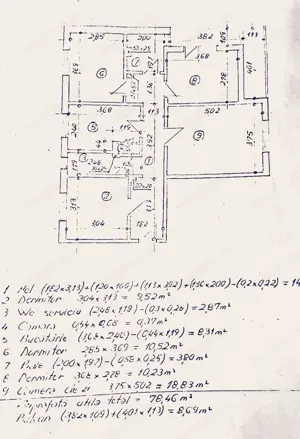 285
200
382
113
109
368
401
365
6
7
197
8
278
136
368
113
502
240
5
119
392
9
375
44
119
3
246
1
2
313
313
304
182
1 Hol (182×3,13)+(120×100)+(113×392)+(136×200)-(0,2×0,22)= 14
2 Dormitor 304×313 = 9,52 m²
3 Wc serviciu (246×1,19)-(0,3×0,26) = 2,87 m²
4 Camara 0,54×0,68 = 0,37 m²
5 Bucatarie (368×2,40)-(0,44×1,19) = 8,31 m²
6 Dormitor 285×369 = 10,52 m²
7 Baie (200×197)-(0,55×0,25) = 3,80 m²
8 Dormitor 368×278 = 10,23 m²
9 Camera de zi 375×502 = 18,83 m²
Suprafata utila total = 78,46 m²
Balcon (382×109)+(401×113) = 8,69 m²